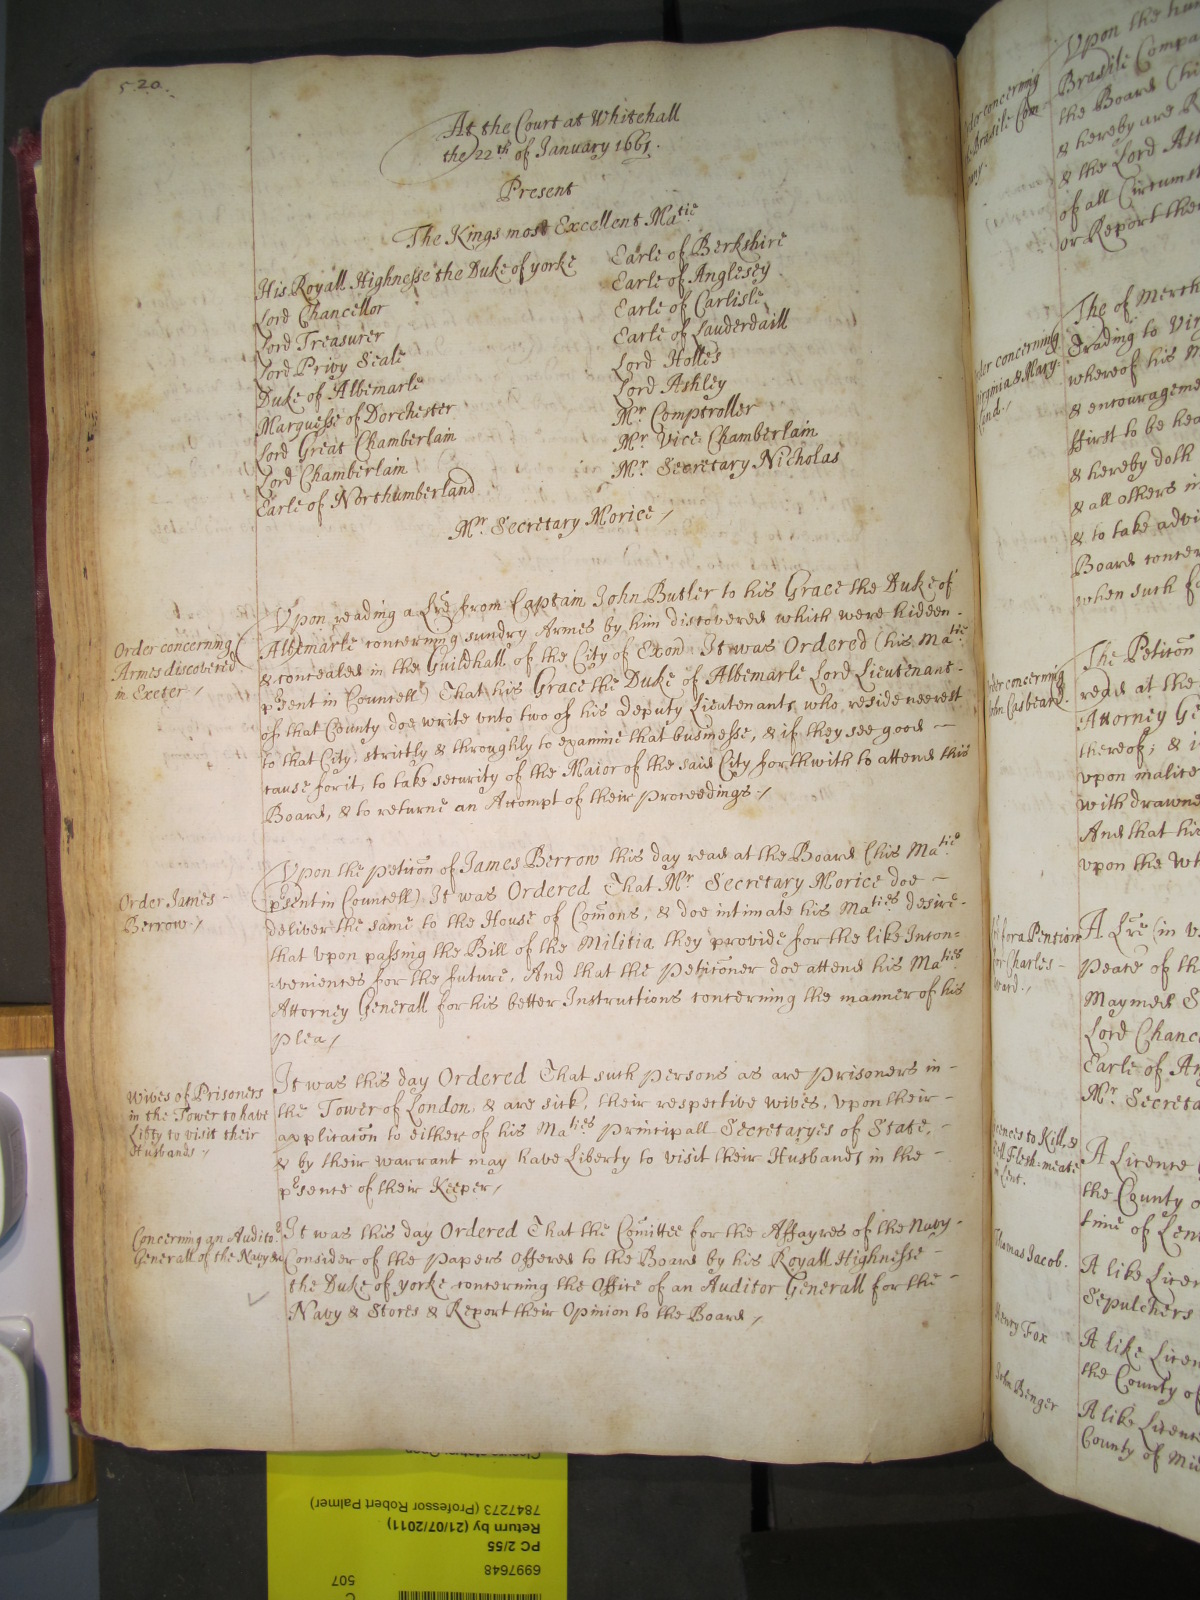 520.
At the Court at Whitehall
the 22th of January 1661.
Present
The Kings most Excellent Matie
His Royall Highnesse the Duke of yorke
Lord Chancellor
Lord Treasurer
Lord Privy Seale
Duke of Albemarle
Marquesse of Dorchester
Lord Great Chamberlain
Lord Chamberlain
Earle of Northumberland
Earle of Berkshire
Earle of Anglesey
Earle of Carlisle
Earle of Lauderdaill
Lord Holles
Lord Ashley
Mr. Comptroller
Mr. Vice Chamberlain
Mr. Secretary Nicholas
Mr. Secretary Morice /
Order concerning
Armes discovered
in Exeter /
Upon reading a Lre from Captain John Butler to his Grace the Duke of
Albemarle concerning sundry Armes by him discovered which were hidden
& concealed in the Guildhall of the City of Exon It was Ordered (his Matie
present in Councell) That his Grace the Duke of Albemarle Lord Lieutenant
of that County doe write vnto two of his Deputy Lieutenants who reside neerest
to that City, strictly & throughly to examine that businesse, & if they see good
cause for it, to take security of the Maior of the said City forthwith to attend this
Board, & to returne an Accompt of their Proceedings /
Order James
Berrow /
Upon the peticon of James Berrow this day read at the Board (his Matie
present in Councell) It was Ordered That Mr Secretary Morice doe
deliver the same to the House of Comons, & doe intimate his Maties desire
that vpon passing the Bill of the Militia they provide for the like Incon=
veniences for the future, And that the peticoner doe attend his Maties
Attorney Generall for his better Instructions concerning the manner of his
plea /
Wives of Prisoners
in the Tower to have
Libty to visit their
Husbands /
It was this day Ordered That such persons as are prisoners in
the Tower of London, & are sick, their respective wives, vpon their
applicacon to either of his Maties Principall Secretaryes of State,
& by their warrant may have Liberty to visit their Husbands in the
presence of their Keeper /
Concerning an Audito.r
Generall of the Navy &c
It was this day Ordered That the Comittee for the Affayres of the Navy
Consider of the papers Offered to the Board by his Royall Highnesse
the Duke of yorke concerning the Office of an Auditor Generall for the
Navy & Stores & Report their Opinion to the Board /
Brasile Compa
the Board (his
& hereby are
& the Lord
of all Circumst
or Report the
The of Merch
Trading to Vir
whereof his M
& encourageme
ffirst to be hea
& hereby doth
& all others in
& to take advi
Board concer
when such
The Peticon
read at the
Attorney Ge
thereof; & i
vpon malice
with drawne
And that his
vpon the wh
for a Pention
for Charles
Ward.
A Lre (in
peace of th
Maymed S
Lord Chanc
Earle of An
Mr. Secreta
to Kill &
Flesh-meate
in Lent.
A Licence
the County o
time of Len
Thomas Jacob.
A like Licen
Sepulchers
Henry Fox
A like Licen
the County of
John Benger
A like Licence
County of Mid
507
6997648
PC 2/55
Return by (21/07/2011)
7847273 (Professor Robert Palmer)